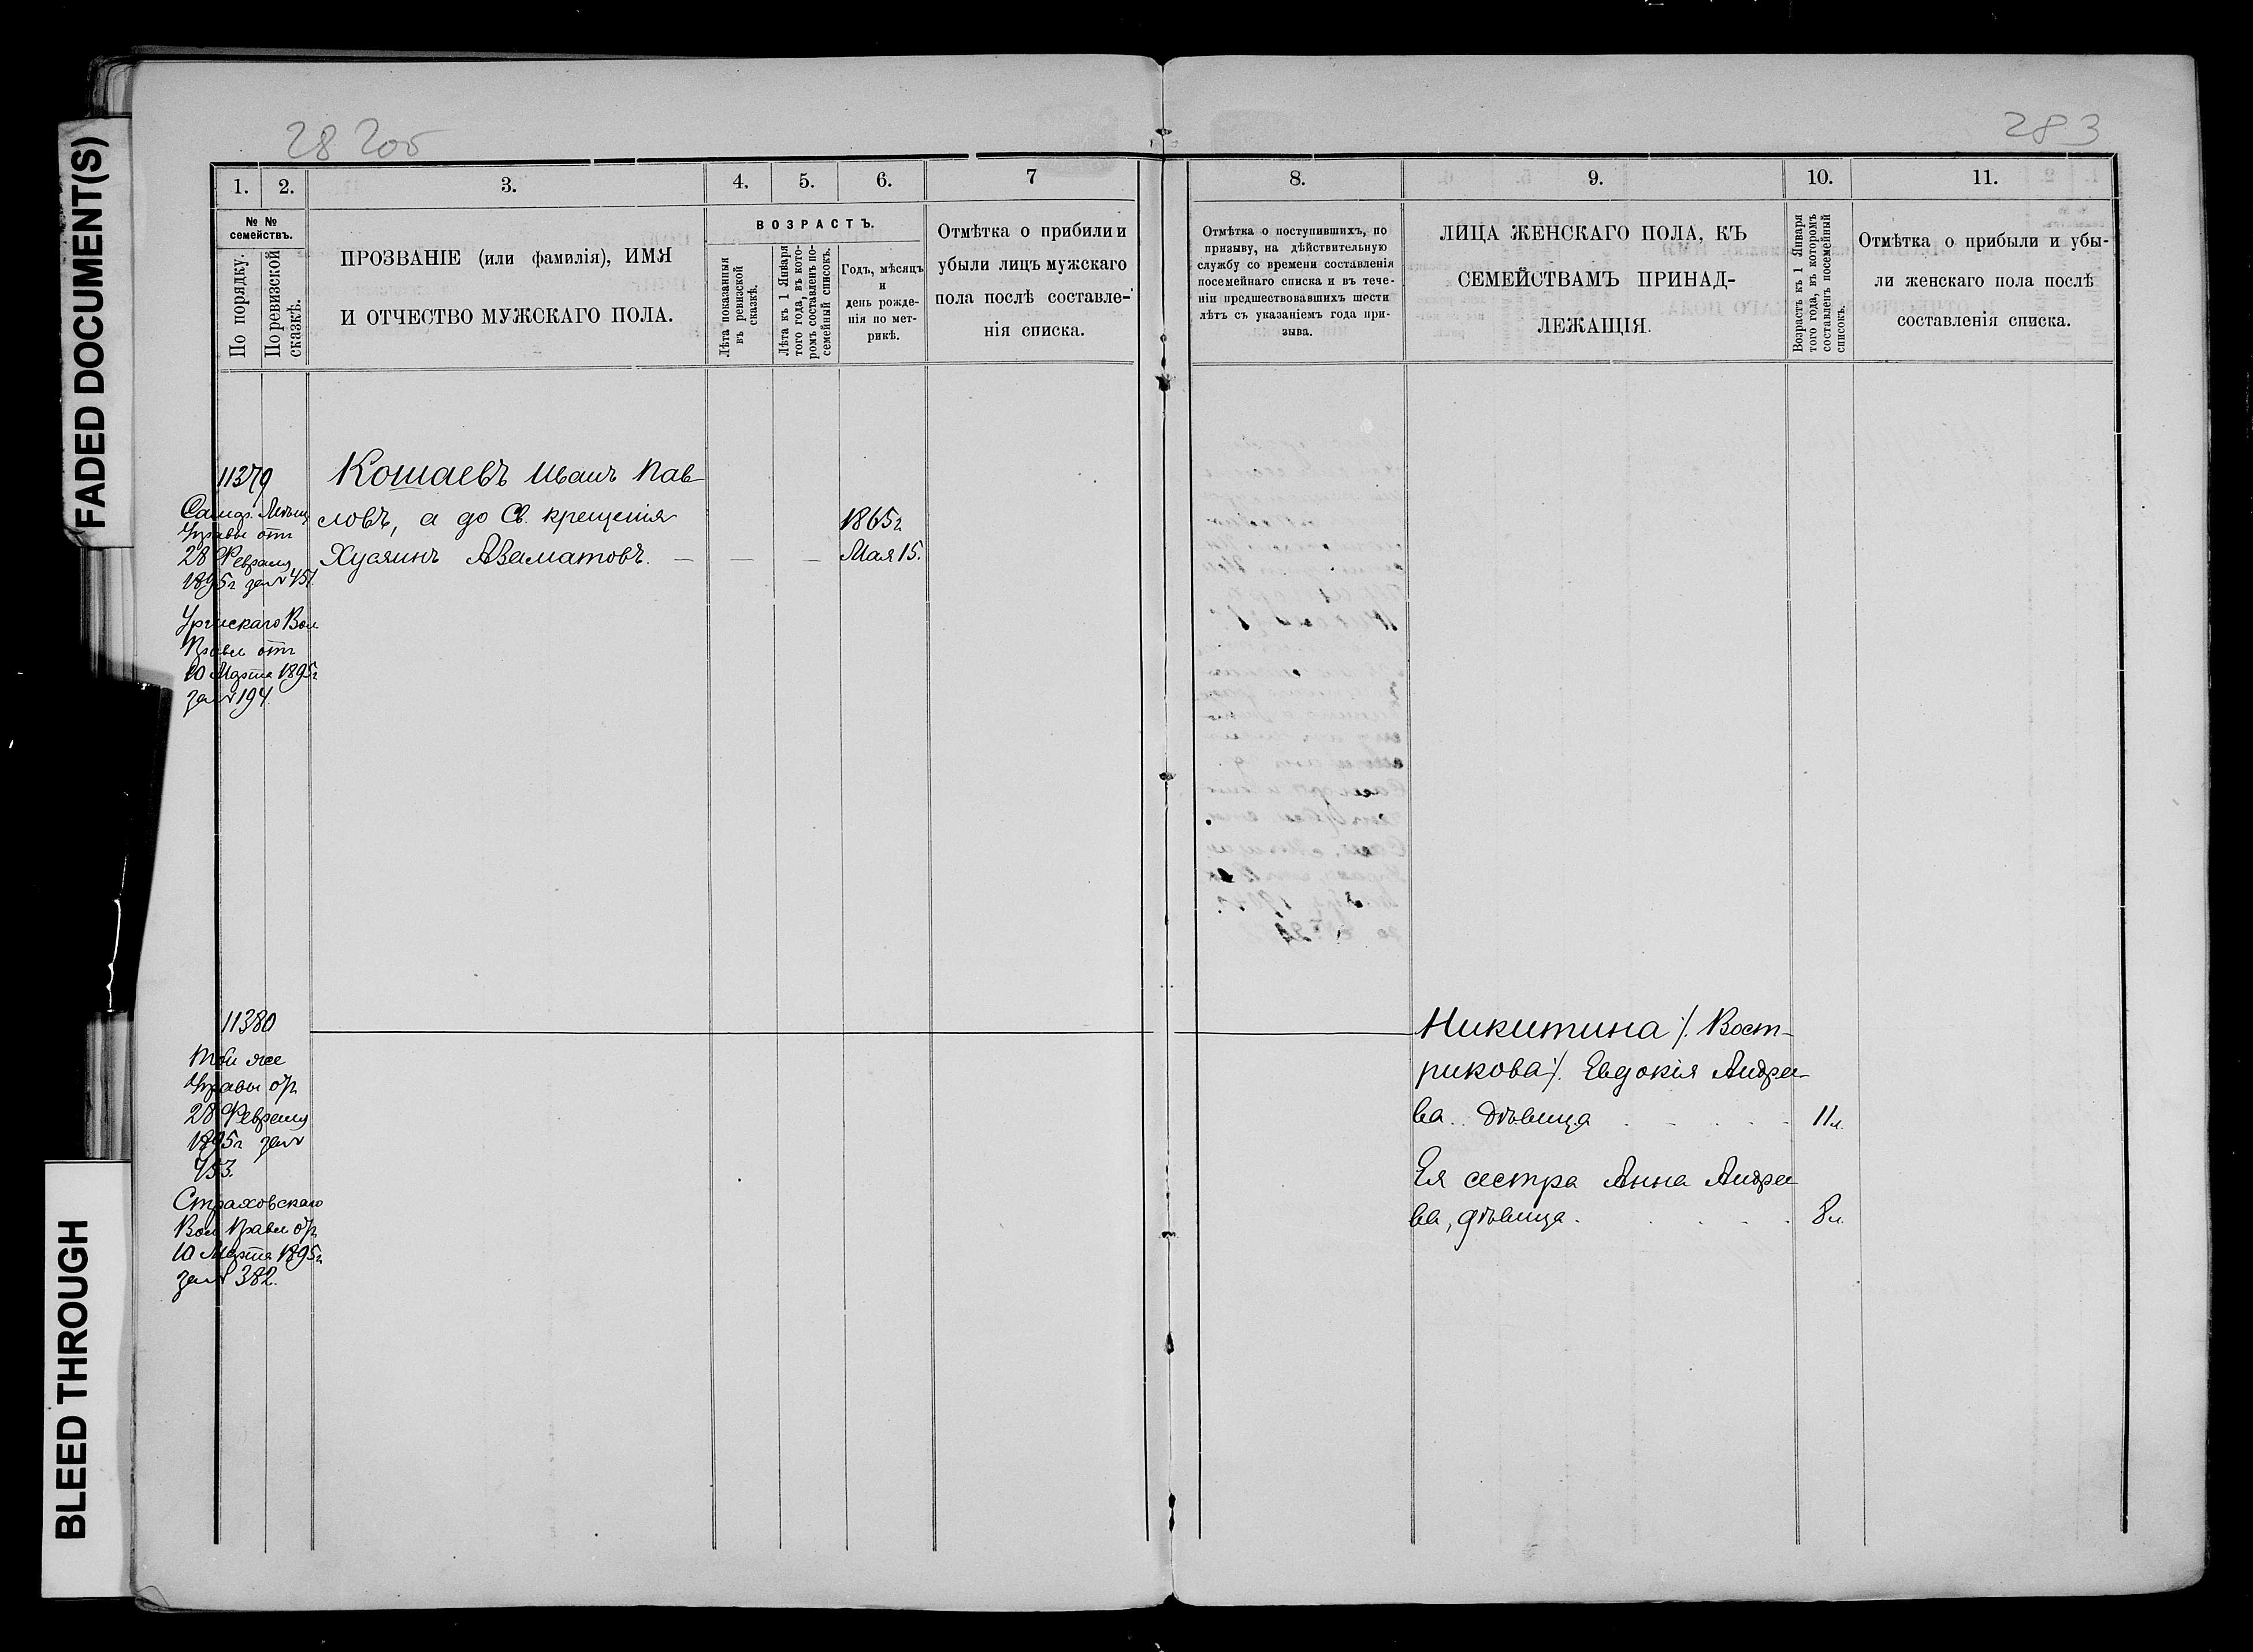 FADED DOCUMENT(S)
BLEED THROUGH
282об
283
1.
2.
3.
4.
5.
6.
7
№ №
семействъ.
По порядку.
По ревизской
сказкѣ.
ПРОЗВАНІЕ (или фамилія), ИМЯ
И ОТЧЕСТВО МУЖСКАГО ПОЛА.
ВОЗРАСТЪ.
Лѣта показанныя
въ ревизской
сказкѣ.
Лѣта къ 1 Января
того года, въ кото-
ромъ составленъ по-
семейный списокъ.
Годъ, мѣсяцъ
и
день рожде-
нія по мет-
рикѣ.
Отмѣтка о прибыли и
убыли лицъ мужскаго
пола послѣ составле-
нія списка.
8.
9.
10.
11.
Отмѣтка о поступившихъ, по
призыву, на дѣйствительную
службу со времени составленія
посемейнаго списка и въ тече-
ніи предшествовавшихъ шести
лѣтъ съ указаніемъ года при-
зыва.
ЛИЦА ЖЕНСКАГО ПОЛА, КЪ
СЕМЕЙСТВАМЪ ПРИНАД-
ЛЕЖАЩІЯ.
Возрастъ къ 1 Января
того года, въ которомъ
составленъ посемейный
списокъ.
Отмѣтка о прибыли и убы-
ли женскаго пола послѣ
составленія списка.
11379
Самар. Мѣщ.
Управы отъ
28 Февраля
1895г за № 451.
Вол.
Правл отъ
10 Марта 1895г
за № 194.
Кошаевъ Иванъ Пав-
ловъ, а до Св. крещенія
Хуаяинъ Азаматовъ. —
1865г
Мая 15.
11380
Той же
Управы от
28 Февраля
1895г за №
453.
Страховскаго
Вол Правл от
10 Марта 1895г
за № 382.
Никитина /. Вост-
рикова /. Евдокія Андрее-
ва. дѣвица
11л.
Ея сестра Анна Андрее
ва, дѣвица.
8л.